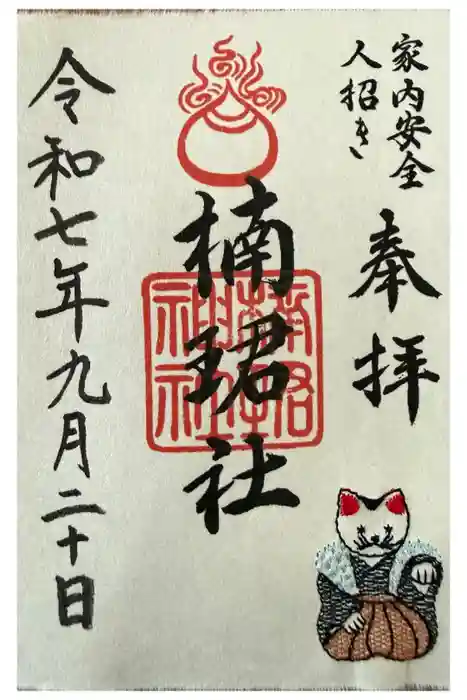 家内安全
人招き
奉拝
楠珺社
令和七年九月二十日